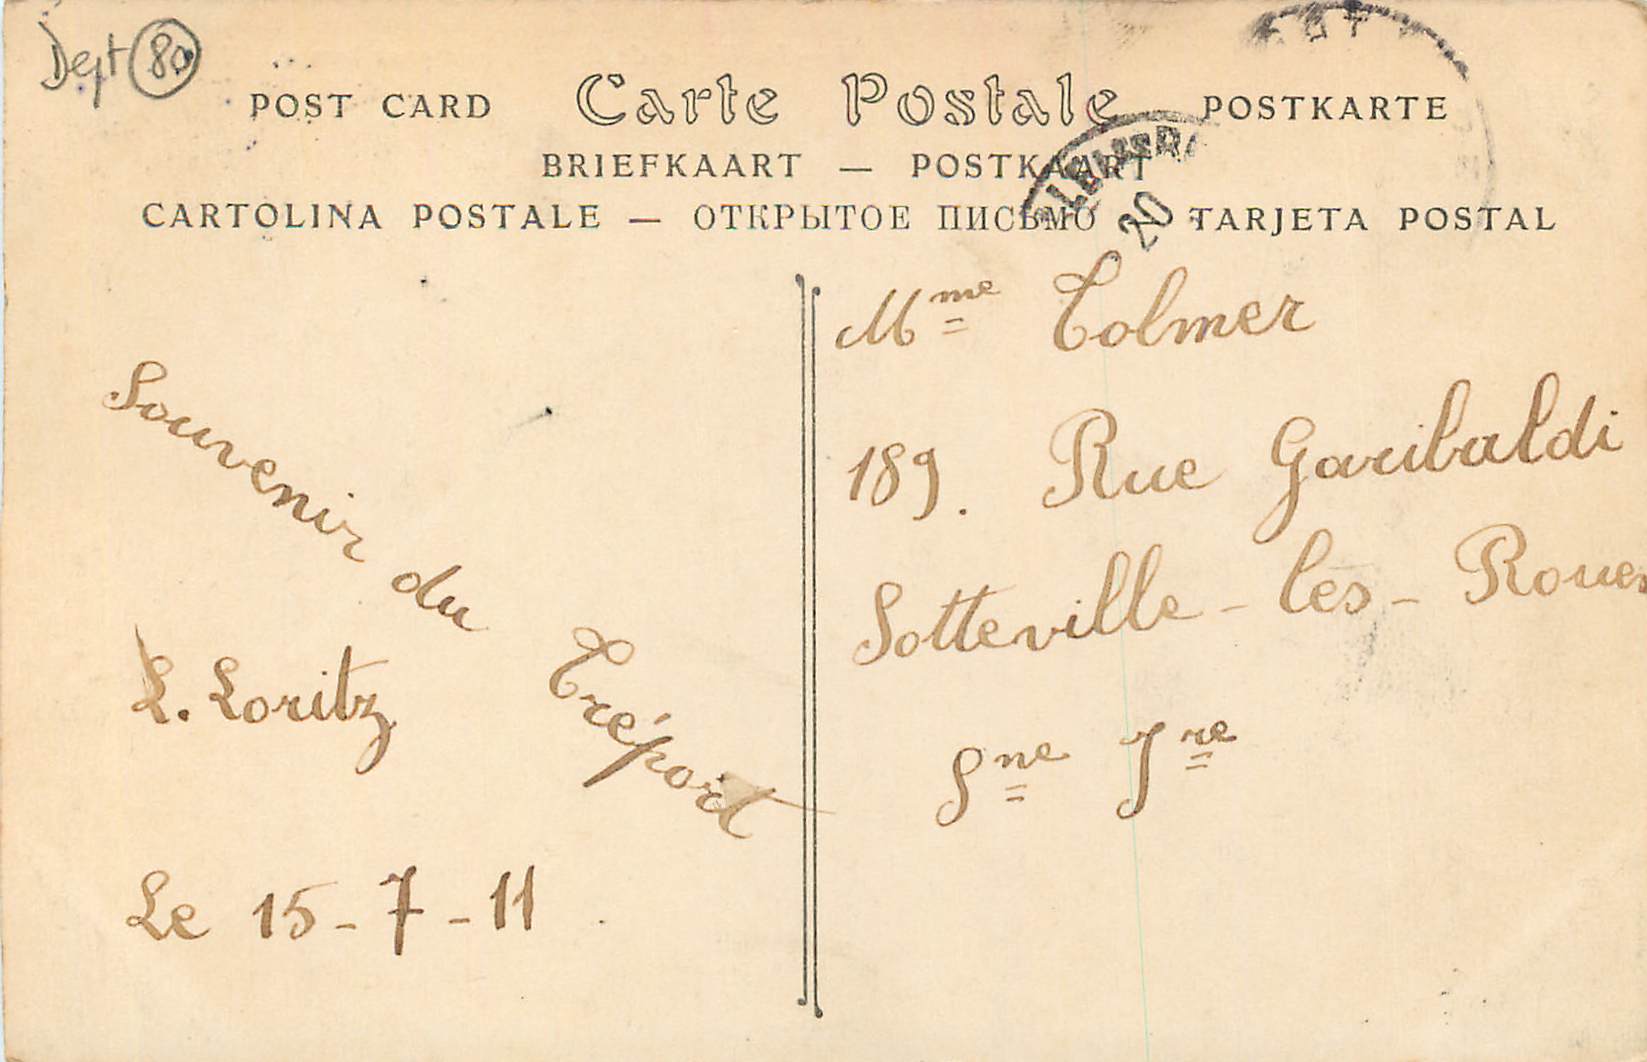 Dept 80
POST CARD Carte Postale POSTKARTE
BRIEFKAART — POSTKAART
CARTOLINA POSTALE — ОТКРЫТОЕ ПИСЬМО — TARJETA POSTAL
20
Souvenir du Tréport
L. Loritz
Le 15-7-11
Mme Tolmer
189. Rue Garibaldi
Sotteville-lès-Rouen
Sne Jre